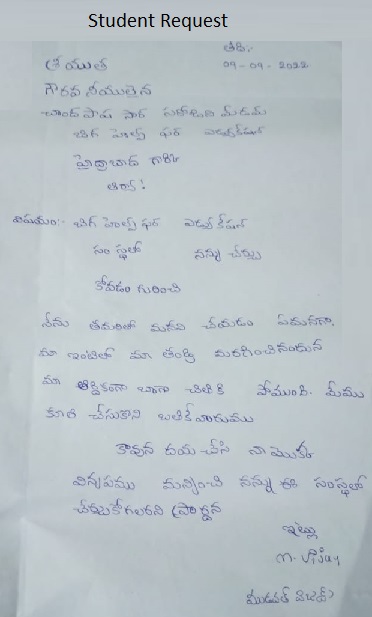 Student Request
తేది:-
09-09-2022
శ్రీయుత
గౌరవనీయులైన
చాంద్ పాష సార్ సరోజిని మేడమ్
బిగ్ హెల్ప్ ఫర్ ఎడ్యుకేషన్
హైద్రాబాద్ గారికి
ఆర్యా!
విషయం:- బిగ్ హెల్ప్ ఫర్ ఎడ్యుకేషన్
సంస్థలో నన్ను చేర్చు
కోవడం గురించి
నేను తమరితో మనవి చేయడం ఏమనగా,
మా ఇంటిలో మా తండ్రి మరణించినందున
మా ఆర్థికంగా బాగా చితికి పోయింది. మేము
కూలి చేసుకొని బతికేవారుము
కావున దయచేసి నా యొక్క
విన్నపము మన్నించి నన్ను ఈ సంస్థలో
చేర్చుకోగలరని ప్రార్థన
ఇట్లు
m. Vijay
విజయ్